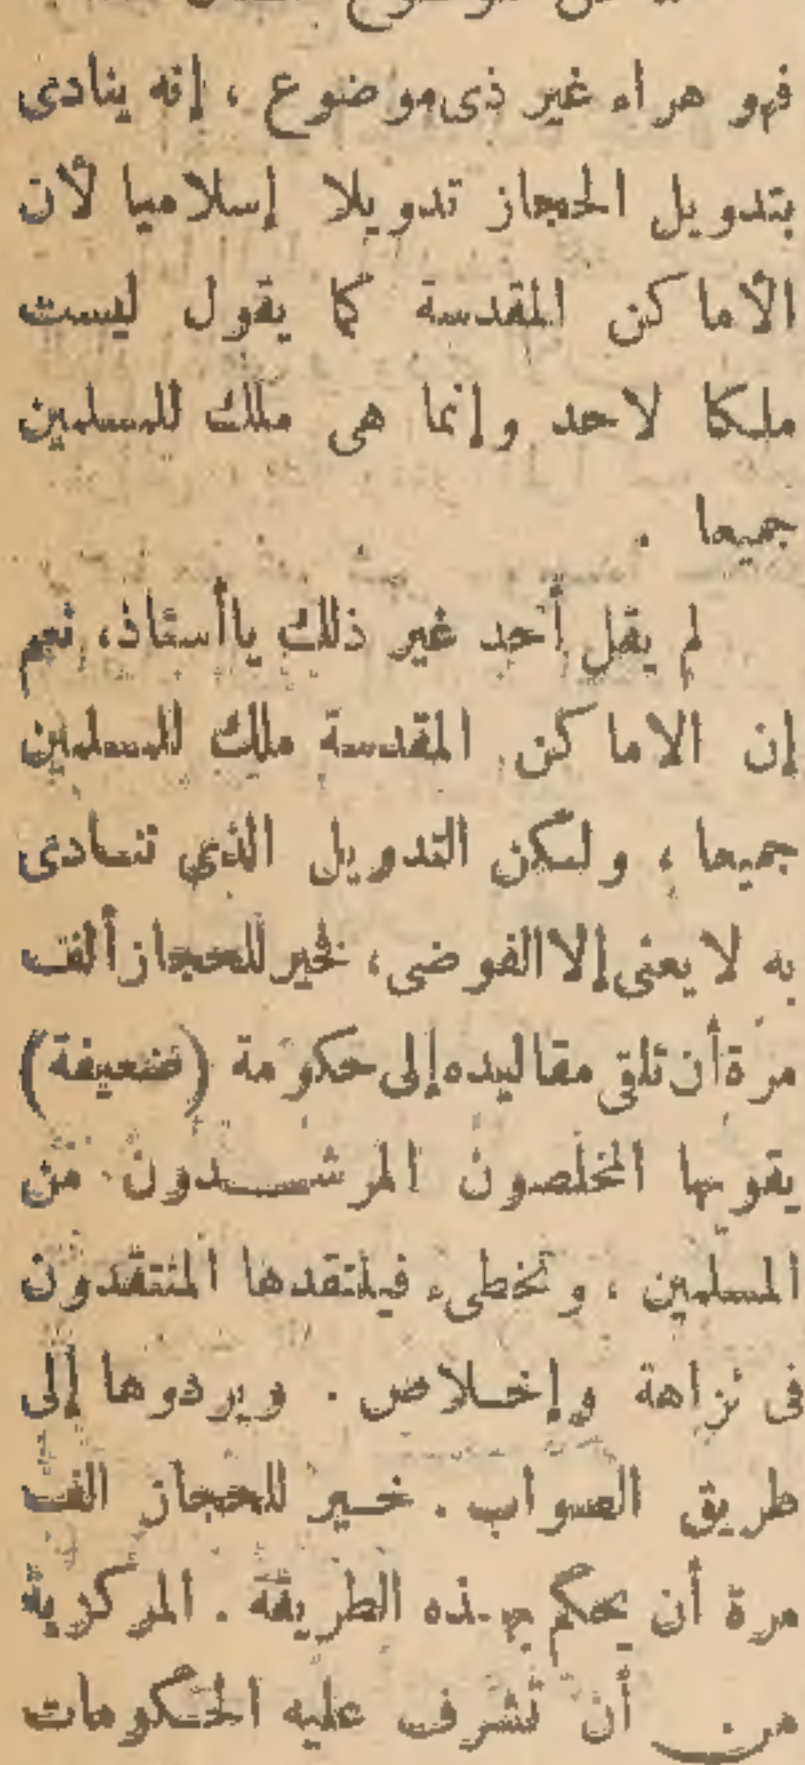 فهو هراء غير ذى موضوع ، إنه ينادى
بتدويل الحجاز تدويلا إسلاميا لأن
الأماكن المقدسة كما يقول ليست
ملكا لاحد وإنما هى ملك للمسلمين
جميعا .
لم يقل أحد غير ذلك ياأستاذ، نعم
إن الاماكن المقدسة ملك للمسلمين
جميعا ، ولكن التدويل الذي تنادى
به لا يعنى إلا الفوضى، فخير للحجاز ألف
مرة أن تلقى مقاليده إلى حكومة (ضعيفة)
يقويها المخلصون المرشدون من
المسلمين ، وتخطىء فينتقدها المنتقدون
فى نزاهة وإخلاص . ويردوها إلى
طريق الصواب . خير للحجاز الف
مرة أن يحكم بهذه الطريقة . المركزية
من أن تشرف عليه الحكومات